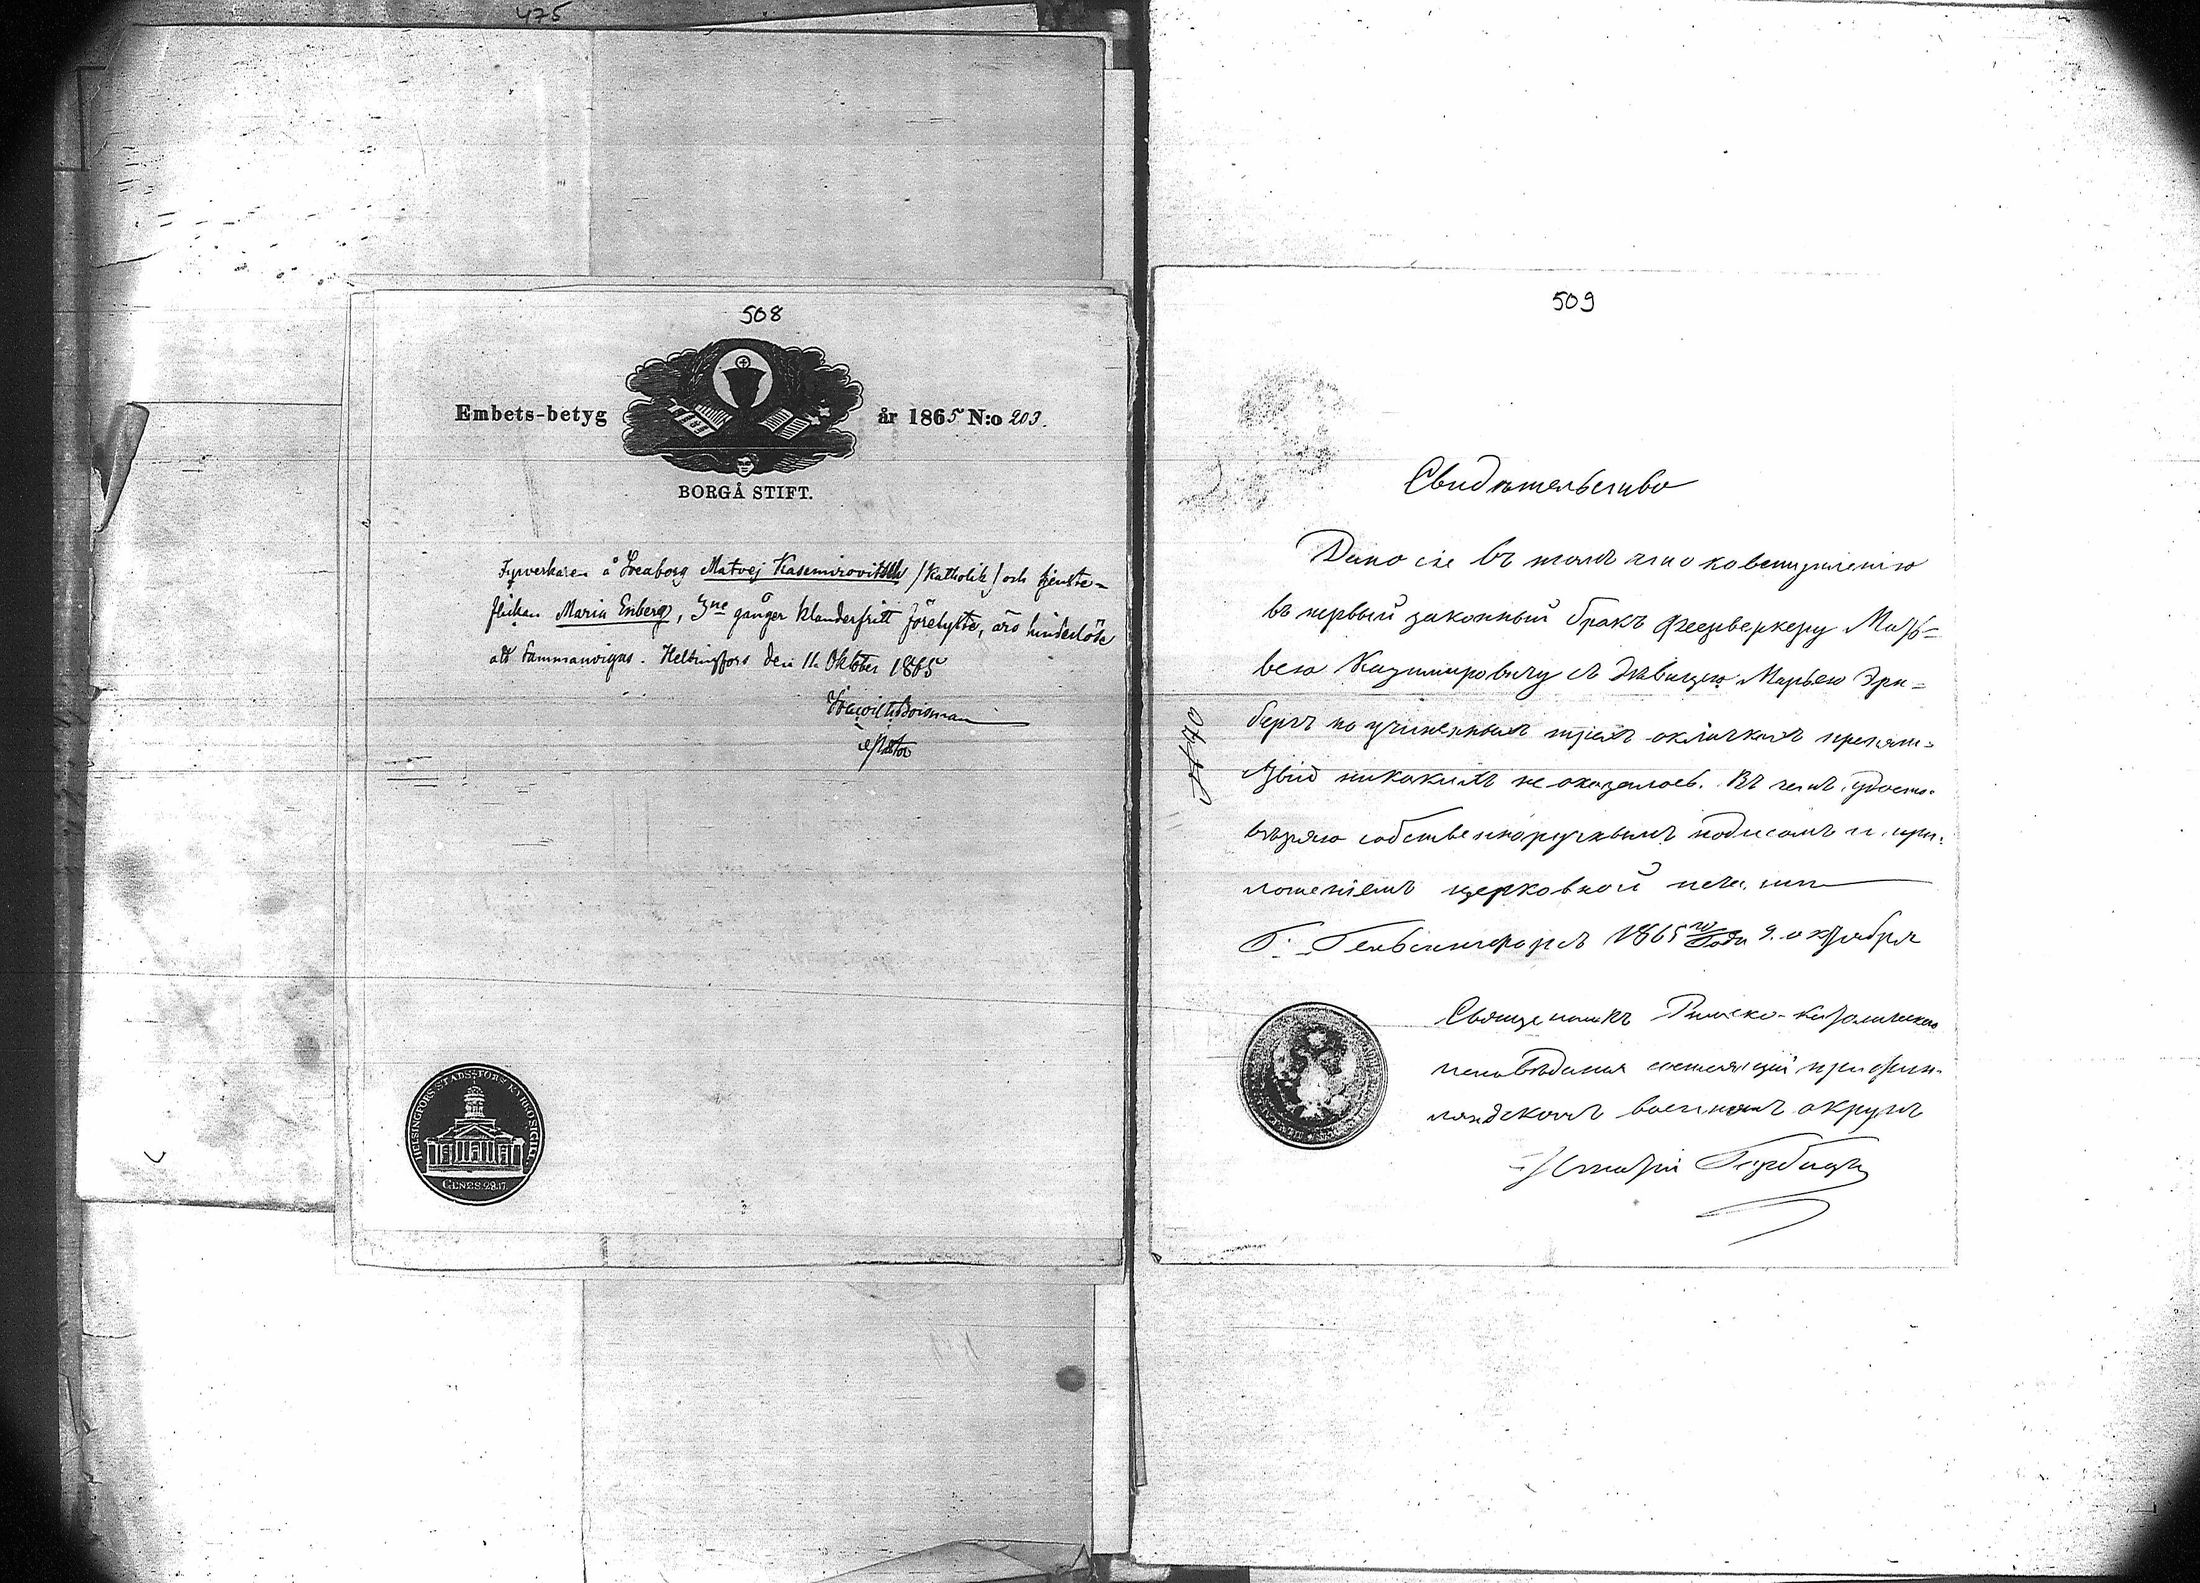 475
508
Embets-betyg år 1865 N:o 203.
BORGÅ STIFT.
Fyrverkaren å Sveaborg Matvej Kasemirovitsch /Katholik/ och tjenste-
flickan Maria Enberg, 3ne gånger klanderfritt förelyste, äro hinderlöse
att sammanvigas. Helsingfors den 11 Oktober 1865
Pastor
HELSINGFORS STADS FÖRS. KYRKOSIGILL.
GENES. 28.17.
509
Свидѣтельство
Дано сіе въ томъ что ко вступленію
въ первый законный бракъ Феерверкеру Матѳ-
вею Казимировичу съ дѣвицею Марьею Эрн-
бергъ по учиненнымъ тремъ окличкамъ препят-
ствій никакихъ не оказалось. Въ чемъ удосто-
вѣряю собственноручнымъ подписомъ и при-
ложеніемъ церковной печати
Г. Гельсингфорсъ 1865 го года 9. октября
Священникъ Римско-католическаго
исповѣданія состоящій при Фин-
ляндскомъ военномъ округѣ